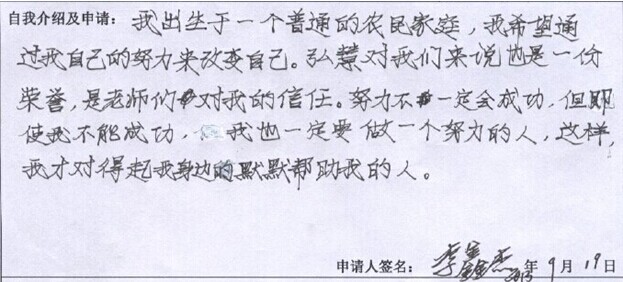 自我介绍及申请：我出生于一个普通的农民家庭，我希望通
过我自己的努力来改变自己。弘慧对我们来说也是一份
荣誉，是老师们对我的信任。努力不一定会成功，但即
使我不能成功，我也一定要做一个努力的人，这样，
我才对得起我身边的默默帮助我的人。
申请人签名：李鑫杰 2013年9月19日